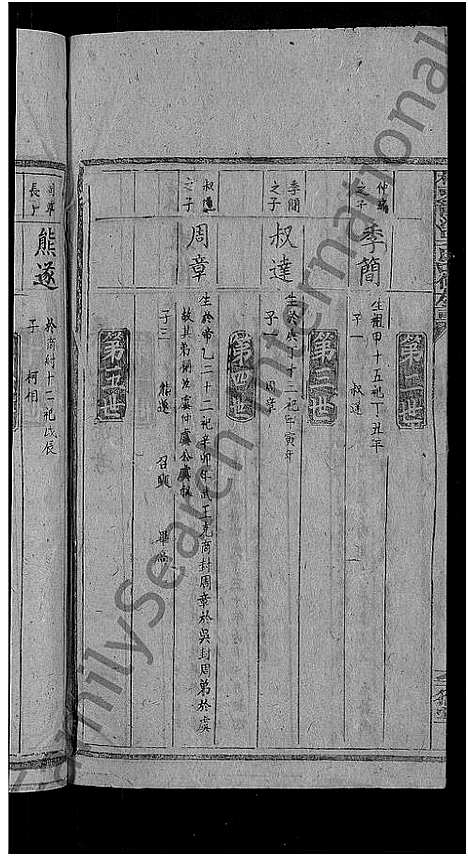 第二世
仲雍之子
季簡
生祖甲十五祀丁丑年
子一 叔達
第三世
季簡之子
叔達
生於庚丁十二祀甲寅年
子一 周章
第四世
叔達之子
周章
生於帝乙二十二祀辛卯年武王克商封周章於吳封周弟於虞
故其弟
虞仲虞公虞叔
子三 熊遂
第五世
周章長子
熊遂
於商紂十一祀戊辰
子 柯相
FamilySearch International